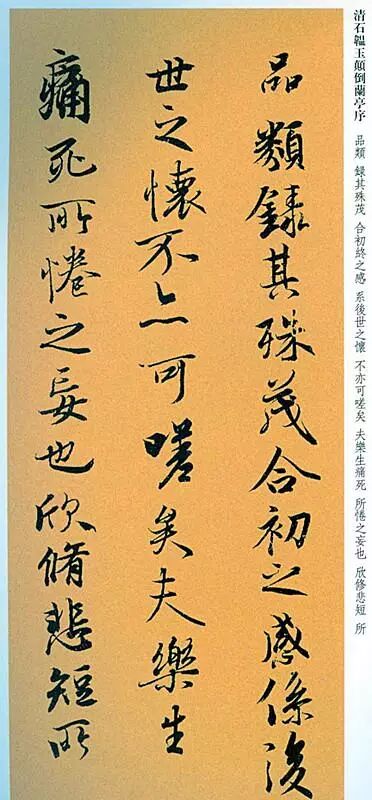 清石韞玉顛倒蘭亭序
品類 録其殊茂 合初終之感 系後世之懷 不亦可嗟矣 夫樂生痛死 所惓之妄也 欣修悲短 所
品類録其殊茂合初之感係後
世之懷不亦可嗟矣夫樂生
痛死所惓之妄也欣脩悲短所